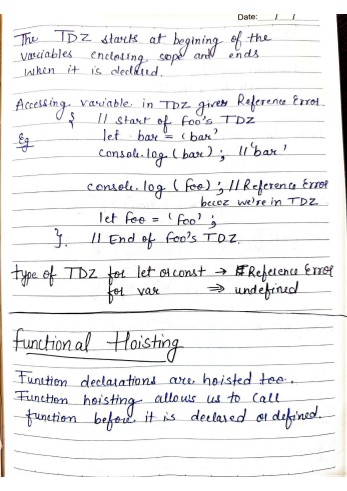 Date: / /
The TDZ starts at begining of the
variables enclosing sope and ends
when it is declared.
Accessing variable in TDZ gives Reference Error.
Eg { // start of foo's TDZ
let bar = 'bar'
console.log (bar) ; // 'bar'
console.log (foo) ; // Reference Error
becoz we're in TDZ
let foo = 'foo' ;
}. // End of foo's TDZ.
type of TDZ for let or const → Reference Error
for var ⇒ undefined
functional Hoisting
Function declarations are hoisted too.
Function hoisting allows us to call
function before it is declared or defined.